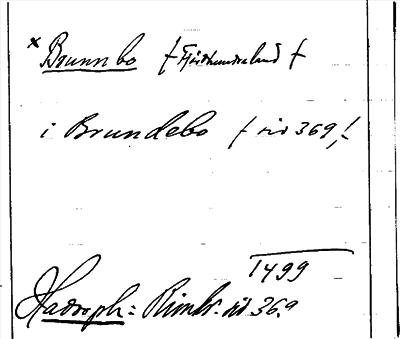 × Brunnbo (Fjärdhundraland)
i Brundebo (sid 369,!
1499
Hadorph: Rimkr. sid 369